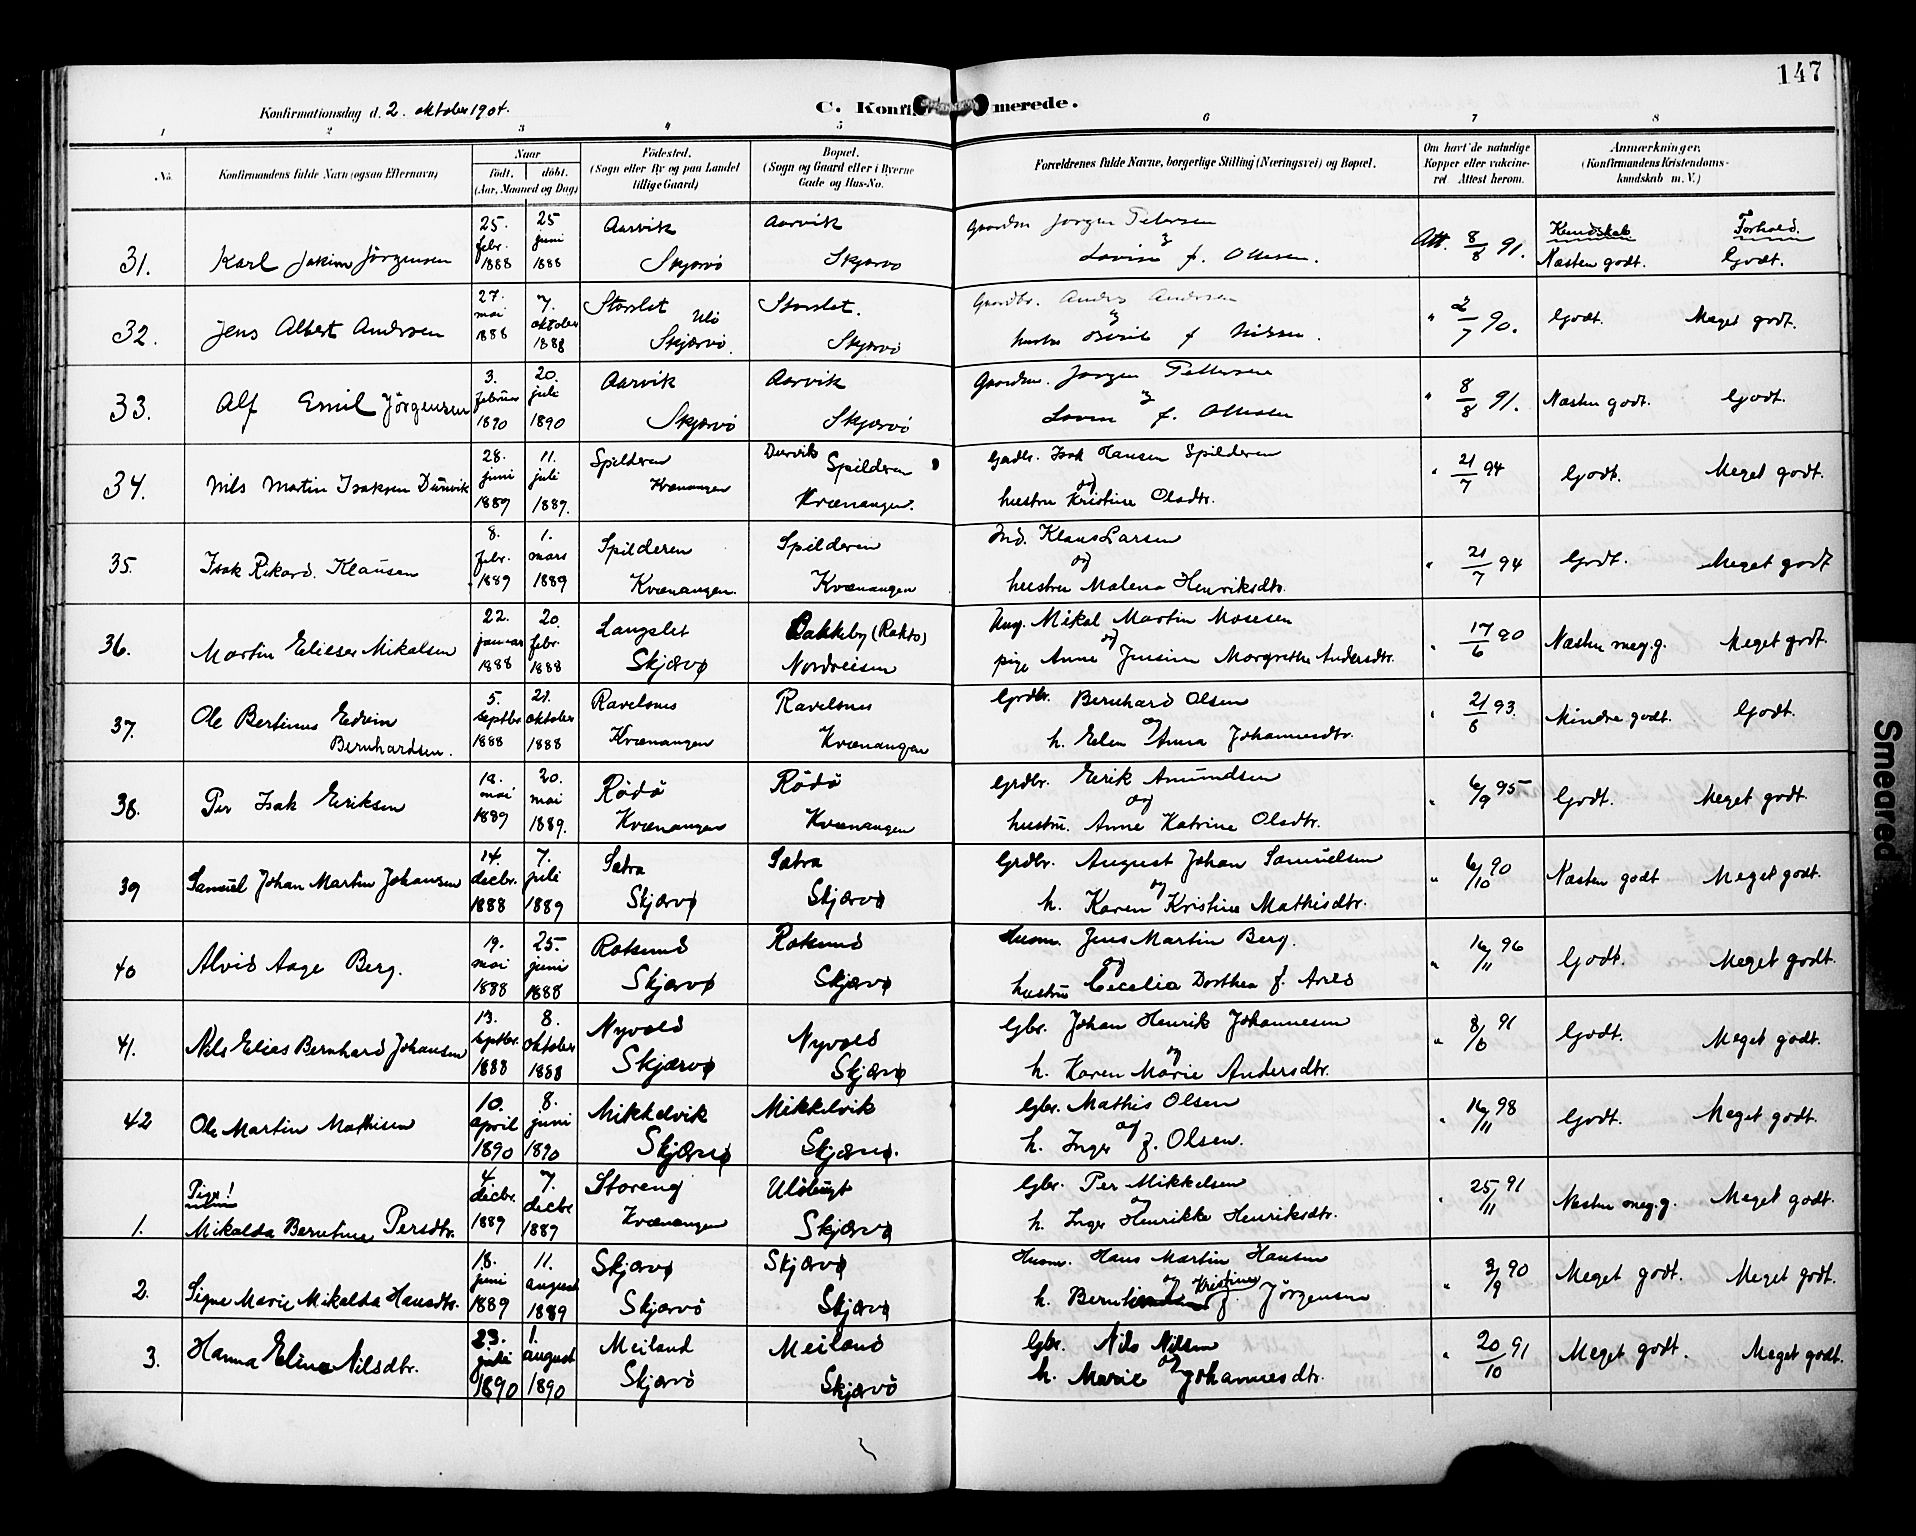 147
Konfirmationsdag d. 2. oktober 1904.
C. Konfirmerede.
1 2 3 4 5 6 7 8
No.
Konfirmandens fulde Navn (ogsaa Efternavn)
Naar
født. døbt.
(Aar, Maaned og Dag)
Födested.
(Sogn eller By og paa Landet
tillige Gaard)
Bopæl.
(Sogn og Gaard eller i Byerne
Gade og Hus-No.
Forældrenes fulde Navne, borgerlige Stilling (Næringsvei) og Bopæl.
Om havt de naturlige
Kopper eller vakcine-
ret Attest herom.
Anmærkninger.
(Konfirmandens Kristendoms-
kundskab m. V.)
Kundskab Forhold.
31. Karl Jakim Jörgensen
25. febr. 1888
25 juni 1888
Aarvik Skjærvö
Aarvik Skjærvö
Jörgen Petersen
Lovise f. Ottesen.
Att. 8/8 91.
Næsten godt. Godt.
32. Jens Albert Andersen
27. mai 1888
7. oktober 1888
Storslet Ulö Skjærvö.
Storslet. Skjærvö
Gaardbr. Anders Andersen
hustru f Nilsen.
" 2/7 90.
Godt. Meget godt.
33. Alf Emil Jörgensen
3. februar 1890
20. juli 1890
Aarvik Skjærvö
Aarvik Skjærvö
Jörgen Pettersen
f. Ottesen
" 8/8 91.
Næsten godt. Godt.
34. Nils Martin Isaksen Durvik
28. juni 1889
11. juli 1889.
Spilderen Kvænangen
Durvik Spilderen Kvænangen.
Gaardbr. Isak Hansen Spilderen
og
hustru Kristine Olsdtr.
" 21/7 94
Godt. Meget godt.
35. Isak Rikard. Klausen
8. febr. 1889
1. mars 1889
Spilderen Kvænangen.
Spilderen Kvænangen
Ind. Klaus Larsen
og
hustru Malena Henriksdtr.
" 21/7 94
Godt. Meget godt
36. Martin Elieser Mikalsen
22. januar 1888
20. febr. 1888
Langslet Skjærvø
Bakkeby (Rakto) Nordreisen
Ung. Mikal Martin Mosesen
og
pige Anne Jensine Margrethe Andersdtr.
" 17/6 90
Næsten meg. g. Meget godt
37. Ole Bertinus Edvin
Bernhardsen.
5. septbr 1888
21. oktober 1888
Ravelsnes Kvænangen
Ravelsnes Kvænangen
Grdbr. Bernhard Olsen
og
h. Elen Anna Johannesdtr.
" 21/6 93.
Mindre godt. Godt.
38. Per Isak Eriksen
19. mai 1889
20. mai 1889.
Rödö Kvænangen
Rödö Kvænangen
Grdbr. Erik Amundsen
og
hustru. Anne Katrine Olsdtr.
" 6/9 95
Godt. Meget godt.
39 Samuel Johan Martin Johansen
14. decbr. 1888
7. juli 1889
Satra Skjærvø
Satra Skjærvø
Grdbr. August Johan Samuelsen
og
h. Karen Kristine Mathisdtr.
" 6/10 90
Næsten godt Meget godt.
40 Alvid Aage Berg.
19. mai 1888
25. juni 1888
Rotsund Skjærvø
Rotsund Skjærvø
Husm. Jens Martin Berg.
og
hustru Cecelia Dorthea f. Arild
" 16/11 96
Godt. Meget godt.
41. Nils Elias Bernhard Johansen
13. septbr. 1888
8. oktober 1888
Nyvold Skjærvø
Nyvold Skjærvø
Gbr. Johan Henrik Johannesen
og
h. Karen Marie Andersdtr.
" 8/6 91
Godt. Meget godt.
42 Ole Martin Mathisen
10. april 1890
8. juni 1890
Mikkelvik Skjærvø
Mikkelvik Skjærvø.
Gbr. Mathis Olsen
og
h. Inger f. Olsen.
" 16/11 98
Godt. Meget godt.
Piger!
1. Mikalda Berntine Persdtr.
4. decbr. 1889
7. decbr 1889
Storeng Kvænangen
Ulöbugt Skjærvø
Gbr. Per Mikkelsen
og
h. Inger Henrikke Henriksdtr.
" 25/11 91
Næsten meg. g. Meget godt.
2. Signe Marie Mikalda Hansdtr.
18. juni 1889
11. august 1889
Skjærvø Skjærvö
Skjærvø Skjærvø
Husm. Hans Martin Hansen
og Kristine
h. f. Jörgensen
" 3/9 90
Meget godt. Meget godt.
3. Hanna Eline Nilsdtr.
23. juli 1890
1. august 1890
Meiland Skjærvö
Meiland Skjærvö
Gbr. Nils Nilsen
og
h. Marie Johannesdtr.
" 20/10 91
Meget godt. Meget godt.
Smeared